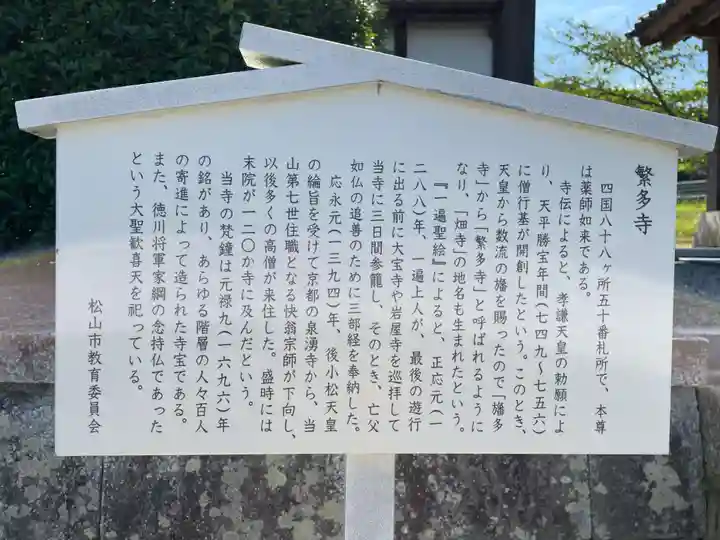 繁多寺
四国八十八ヶ所五十番札所で、本尊
は薬師如来である。
寺伝によると、孝謙天皇の勅願によ
り、天平勝宝年間(七四九~七五六)
に僧行基が開創したという。このとき、
天皇から数流の旛を賜ったので「旛多
寺」から「繁多寺」と呼ばれるように
なり、「畑寺」の地名も生まれたという。
『一遍聖絵』によると、正応元(一
二八八)年、一遍上人が、最後の遊行
に出る前に大宝寺や岩屋寺を巡拝して
当寺に三日間参籠し、そのとき、亡父
如仏の追善のために三部経を奉納した。
応永元(一三九四)年、後小松天皇
の綸旨を受けて京都の泉湧寺から、当
山第七世住職となる快翁宗師が下向し、
以後多くの高僧が来住した。盛時には
末院が一二〇か寺に及んだという。
当寺の梵鐘は元禄九(一六九六)年
の銘があり、あらゆる階層の人々百人
の寄進によって造られた寺宝である。
また、徳川将軍家綱の念持仏であった
という大聖歓喜天を祀っている。
松山市教育委員会